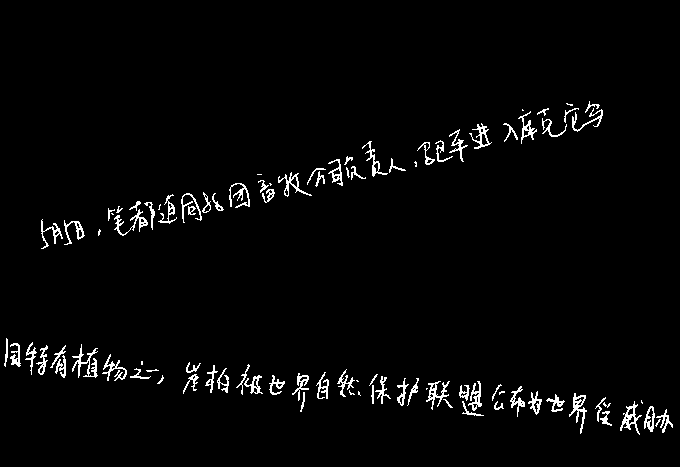 5月5日,笔者随同该团畜牧公司负责人,驱车进入库克它乌
国特有植物之一,崖柏被世界自然保护联盟公布为世界受威胁